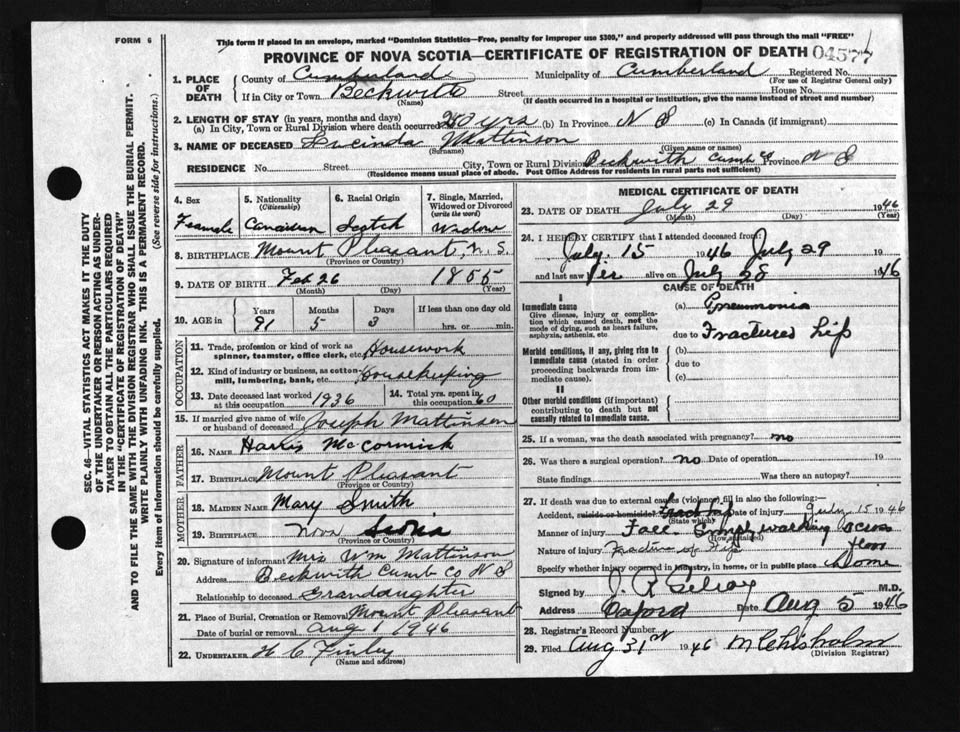 FORM 6
This form if placed in an envelope, marked "Dominion Statistics—Free, penalty for improper use $300," and properly addressed will pass through the mail "FREE"
PROVINCE OF NOVA SCOTIA—CERTIFICATE OF REGISTRATION OF DEATH 04577
1. PLACE OF DEATH County of Cumberland Municipality of Cumberland Registered No.
(For use of Registrar General only)
If in City or Town Beckwith Street House No.
(Name) (If death occurred in a hospital or institution, give the name instead of street and number)
2. LENGTH OF STAY (in years, months and days)
(a) In City, Town or Rural Division where death occurred 20 yrs (b) In Province N S (c) In Canada (if immigrant)
3. NAME OF DECEASED Lucinda Mattinson
(Surname) (Given name or names)
RESIDENCE No. Street City, Town or Rural Division Beckwith Cumb Co Province N S
(Residence means usual place of abode. Post Office Address for residents in rural parts not sufficient)
4. Sex Female
5. Nationality (Citizenship) Canadian
6. Racial Origin Scotch
7. Single, Married, Widowed or Divorced (write the word) Widow
8. BIRTHPLACE Mount Pleasant, N. S.
(Province or Country)
9. DATE OF BIRTH Feb 26 1855
(Month) (Day) (Year)
10. AGE in Years 91 Months 5 Days 3 If less than one day old hrs. or min.
OCCUPATION
11. Trade, profession or kind of work as spinner, teamster, office clerk, etc. Housework
12. Kind of industry or business, as cotton-mill, lumbering, bank, etc. Housekeeping
13. Date deceased last worked at this occupation 1936
14. Total yrs. spent in this occupation 60
15. If married give name of wife or husband of deceased Joseph Mattinson
FATHER
16. NAME Harris McCormick
17. BIRTHPLACE Mount Pleasant
(Province or Country)
MOTHER
18. MAIDEN NAME Mary Smith
19. BIRTHPLACE Nova Scotia
(Province or Country)
20. Signature of informant Mrs Wm Mattinson
Address Beckwith Cumb Co N S
Relationship to deceased Granddaughter
21. Place of Burial, Cremation or Removal Mount Pleasant
Date of burial or removal Aug 1 1946
22. UNDERTAKER H C Finley
(Name and address)
MEDICAL CERTIFICATE OF DEATH
23. DATE OF DEATH July 29 1946
(Month) (Day) (Year)
24. I HEREBY CERTIFY that I attended deceased from
July 15 1946 July 29 19
and last saw her alive on July 28 1946
CAUSE OF DEATH
I
Immediate cause
Give disease, injury or complication which caused death, not the mode of dying, such as heart failure, asphyxia, asthenia, etc
(a) Pneumonia
due to Fractured hip
Morbid conditions, if any, giving rise to immediate cause (stated in order proceeding backwards from immediate cause).
(b)
due to
(c)
II
Other morbid conditions (if important) contributing to death but not causally related to immediate cause.
25. If a woman, was the death associated with pregnancy? no
26. Was there a surgical operation? no Date of operation 19
State findings Was there an autopsy?
27. If death was due to external causes (violence) fill in also the following:
Accident, suicide or homicide? Date of injury July 15 1946
(State which)
Manner of injury Fall walking across floor
(How sustained)
Nature of injury Fracture of hip
Specify whether injury occurred in industry, in home, or in public place Home
Signed by M.D.
Address Oxford Date Aug 5 1946
28. Registrar's Record Number
29. Filed Aug 31 1946 M Chisholm
(Division Registrar)
SEC. 46—VITAL STATISTICS ACT MAKES IT THE DUTY
OF THE UNDERTAKER OR PERSON ACTING AS UNDER-
TAKER TO OBTAIN ALL THE PARTICULARS REQUIRED
IN THE "CERTIFICATE OF REGISTRATION OF DEATH"
AND TO FILE THE SAME WITH THE DIVISION REGISTRAR WHO SHALL ISSUE THE BURIAL PERMIT.
WRITE PLAINLY WITH UNFADING INK. THIS IS A PERMANENT RECORD.
Every item of information should be carefully supplied. (See reverse side for instructions.)